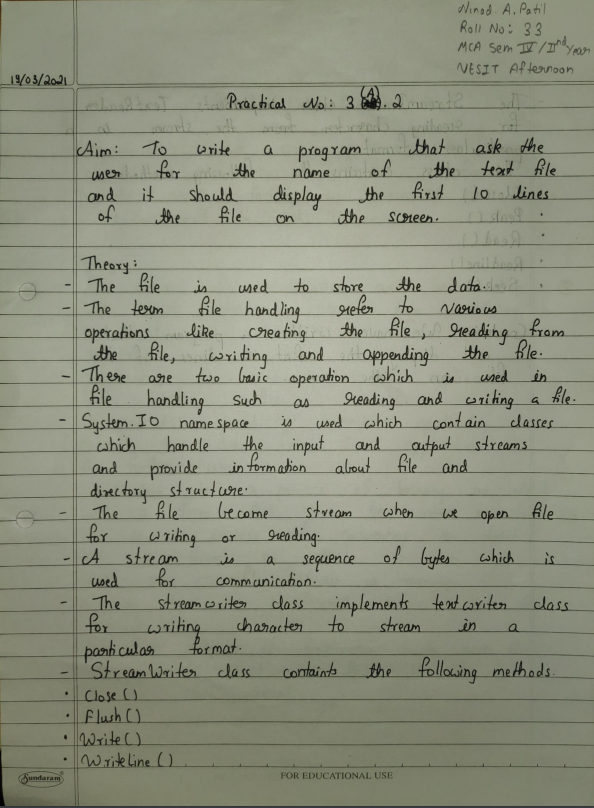 Ninad A. Patil
Roll No: 33
MCA Sem IV/IInd Year
VESIT Afternoon
19/03/2021
Practical No: 3 (A). 2
Aim: To write a program that ask the
user for the name of the text file
and it should display the first 10 lines
of the file on the screen.
Theory:
- The file is used to store the data.
- The term file handling refer to various
operations like creating the file, reading from
the file, writing and appending the file.
- There are two basic operation which is used in
file handling such as reading and writing a file.
- System.IO namespace is used which contain classes
which handle the input and output streams
and provide information about file and
directory structure.
- The file become stream when we open file
for writing or reading.
- A stream is a sequence of bytes which is
used for communication.
- The streamwriter class implements textwriter class
for writing character to stream in a
particular format.
- StreamWriter class containts the following methods.
• Close ()
• Flush ()
• Write ()
• WriteLine ()
Sundaram
FOR EDUCATIONAL USE